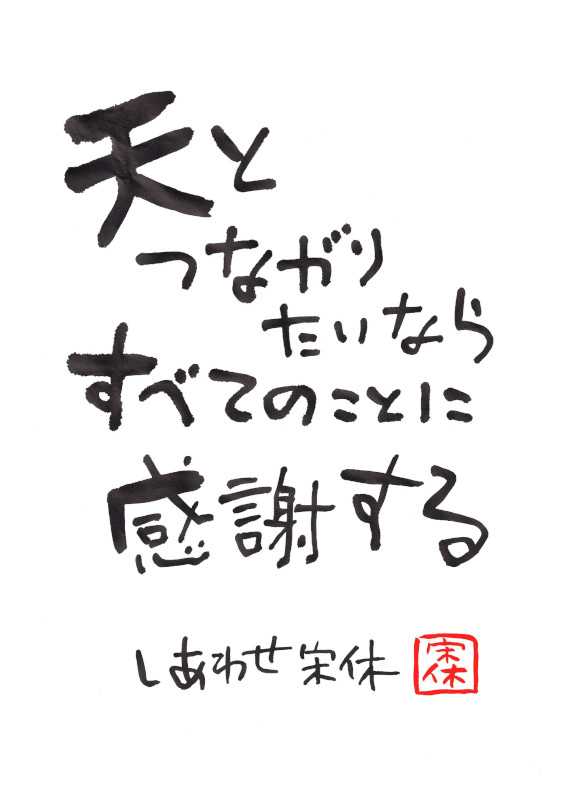 天と
つながり
たいなら
すべてのことに
感謝する
しあわせ宋休
宋休